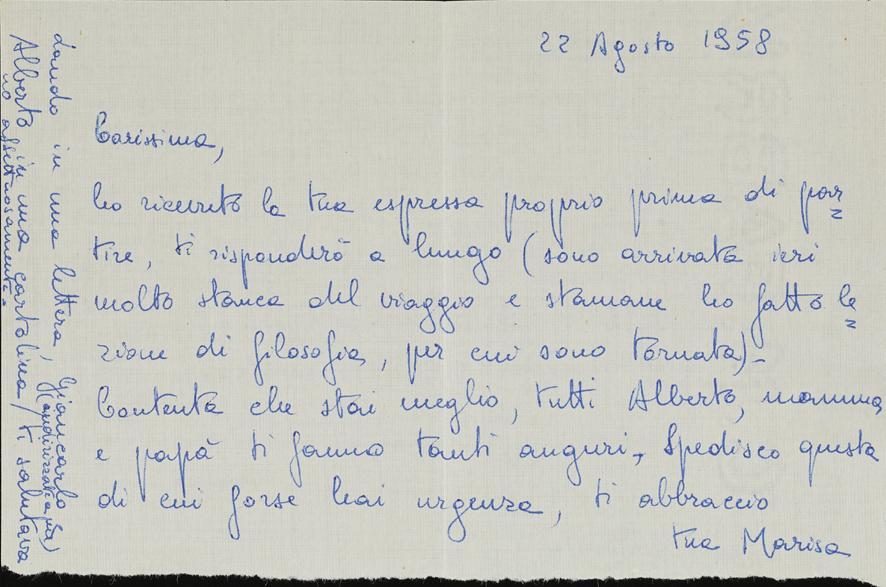 22 Agosto 1958
Carissima,
ho ricevuto la tua espressa proprio prima di par=
tire, ti risponderò a lungo (sono arrivata ieri
molto stanca del viaggio e stamane ho fatto le=
zione di filosofia, per cui sono tornata)-
Contenta che stai meglio, tutti Alberto, mamma
e papà ti fanno tanti auguri, Spedisco questa
di cui forse hai urgenza, ti abbraccio
tua Marisa
Lando in una lettera, Giancarlo
(indirizzati a me)
Alberto in una cartolina, ti saluta
no affettuosamente.